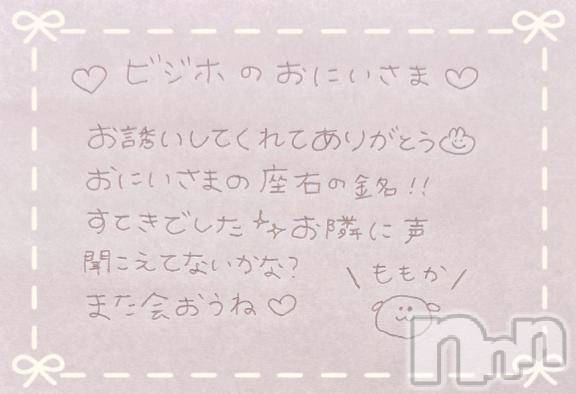 ♡ ビジホのおにいさま ♡
お誘いしてくれてありがとう
おにいさまの座右の銘!!
すてきでした お隣に声
聞こえてないかな?
\ ももか /
また会おうね♡
nnn